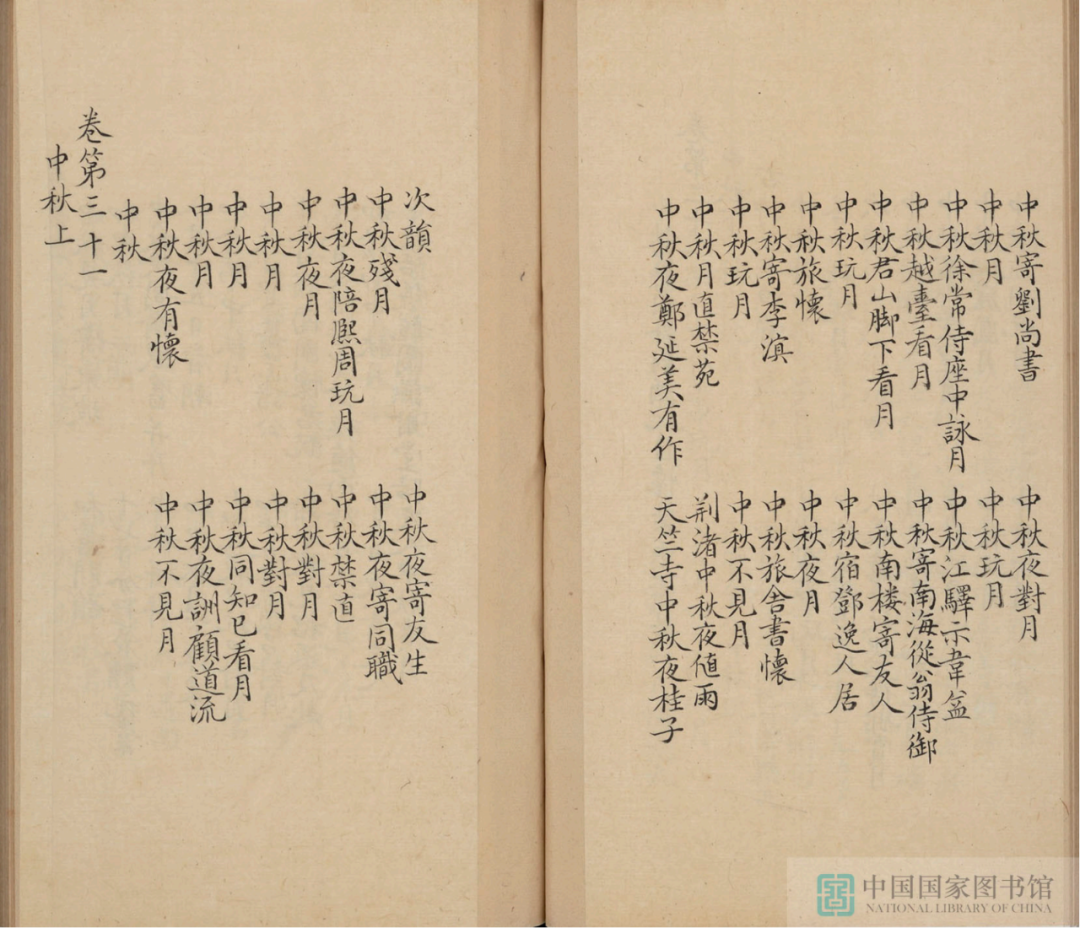 中秋寄劉尚書
中秋夜對月
中秋月
中秋玩月
中秋徐常侍座中詠月
中秋江驛示韋益
中秋越臺看月
中秋寄南海從翁侍御
中秋君山脚下看月
中秋南楼寄友人
中秋玩月
中秋宿鄧逸人居
中秋旅懷
中秋夜月
中秋寄李滇
中秋旅舍書懷
中秋玩月
中秋不見月
中秋月直禁苑
荆渚中秋夜值雨
中秋夜鄭延美有作
天竺寺中秋夜桂子
次韻
中秋夜寄友生
中秋殘月
中秋夜寄同職
中秋夜陪熈周玩月
中秋禁直
中秋夜月
中秋對月
中秋月
中秋對月
中秋月
中秋同知已看月
中秋月
中秋夜詶顧道流
中秋夜有懷
中秋不見月
中秋
卷第三十一
中秋上
中国国家图书馆
NATIONAL LIBRARY OF CHINA